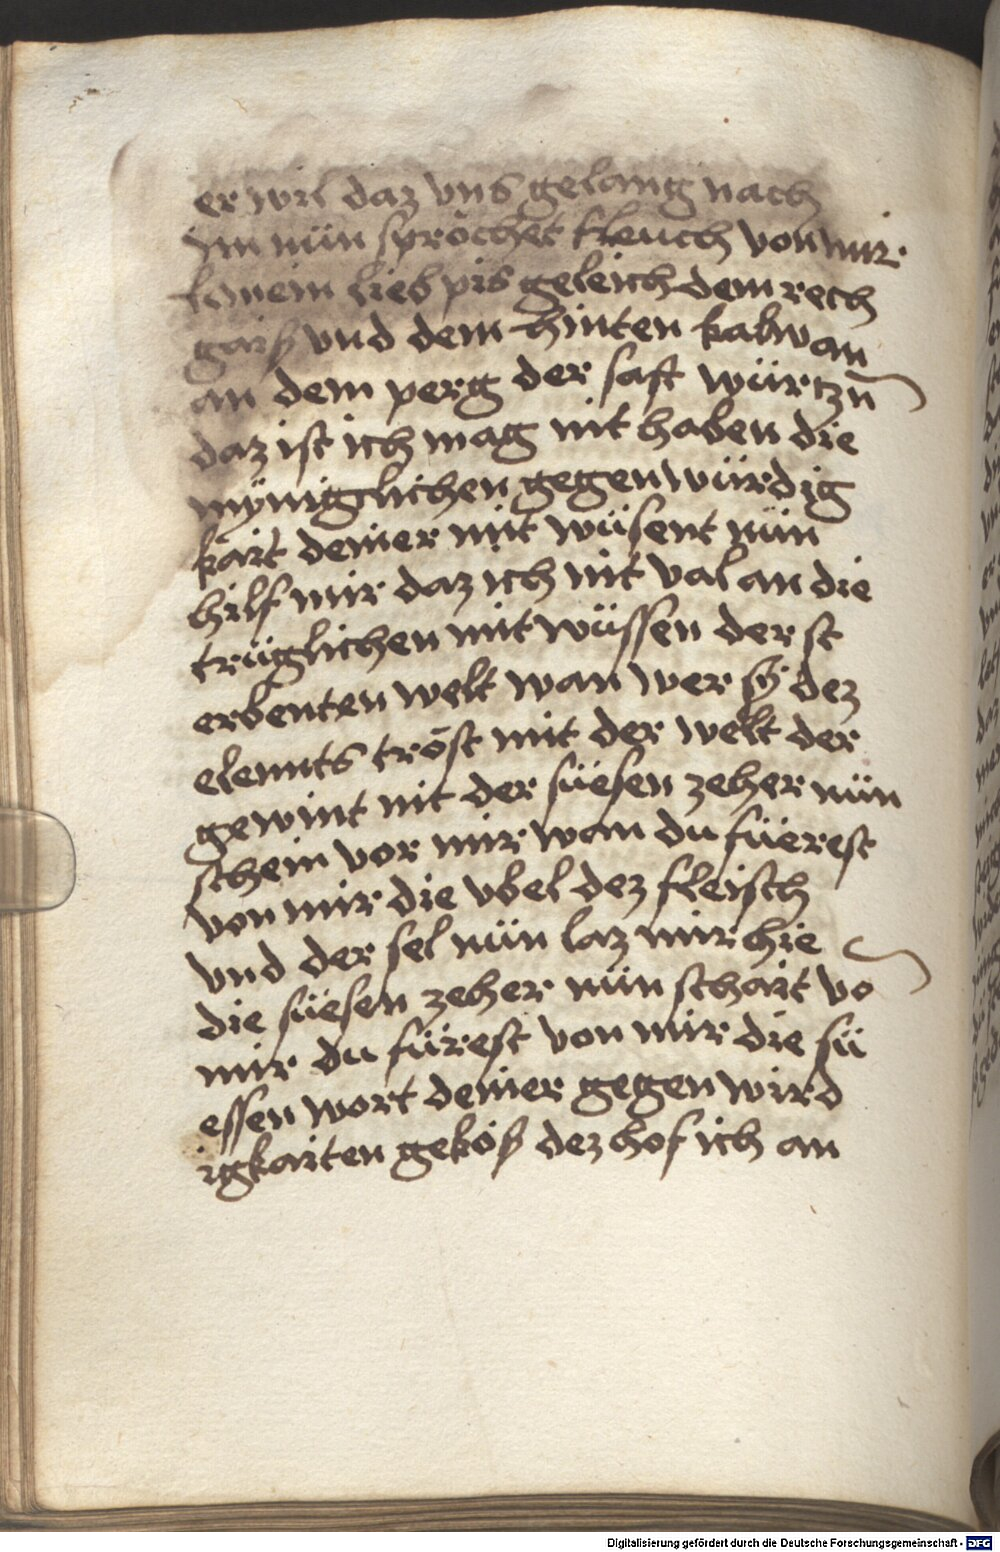 er wil daz vns gelang nach
Im nün spröchet fleuch von mir
lo mein lieb pis geleich dem rech
gaiß vnd dem hinten kalw an
an dem perg der saft würtzn̄
daz ist ich mag nit haben die
mÿnigglichen gegenwürdig
kait deiner mit wüsent nün
hilf mir daz ich nit val an die
trüglichen mit wüssen der st
erbenten welt wan wer sÿ dez
elennts tröst mit der welt der
gewint nit der süesen zeher nün
schein vor mir wan du füerest
von mir die vbel dez fleisch
vnd der sel nün laz mir hie
die süesen zeher nün schait vō
mir du fürest von mir die sü
essen wort deiner gegenwird
igkaiten geköß dez hof ich an
Digitalisierung gefördert durch die Deutsche Forschungsgemeinschaft - DFG